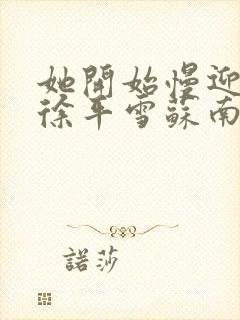 她開始慢迎
徐平雪蘇南
諾莎